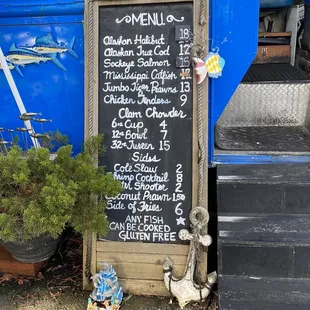 MENU
Alaskan Halibut 18
Alaskan True Cod 12
Sockeye Salmon 15
Mississippi Catfish 12
Jumbo Tiger Prawns 13
Chicken Tenders 9
Clam Chowder
6oz Cup 4
12oz Bowl 7
32oz Tureen 15
Sides
Cole Slaw 2
Shrimp Cocktail 8
Shooter 2
Coconut Prawn 1.50
Side of Fries 6
ANY FISH
CAN BE COOKED
GLUTEN FREE